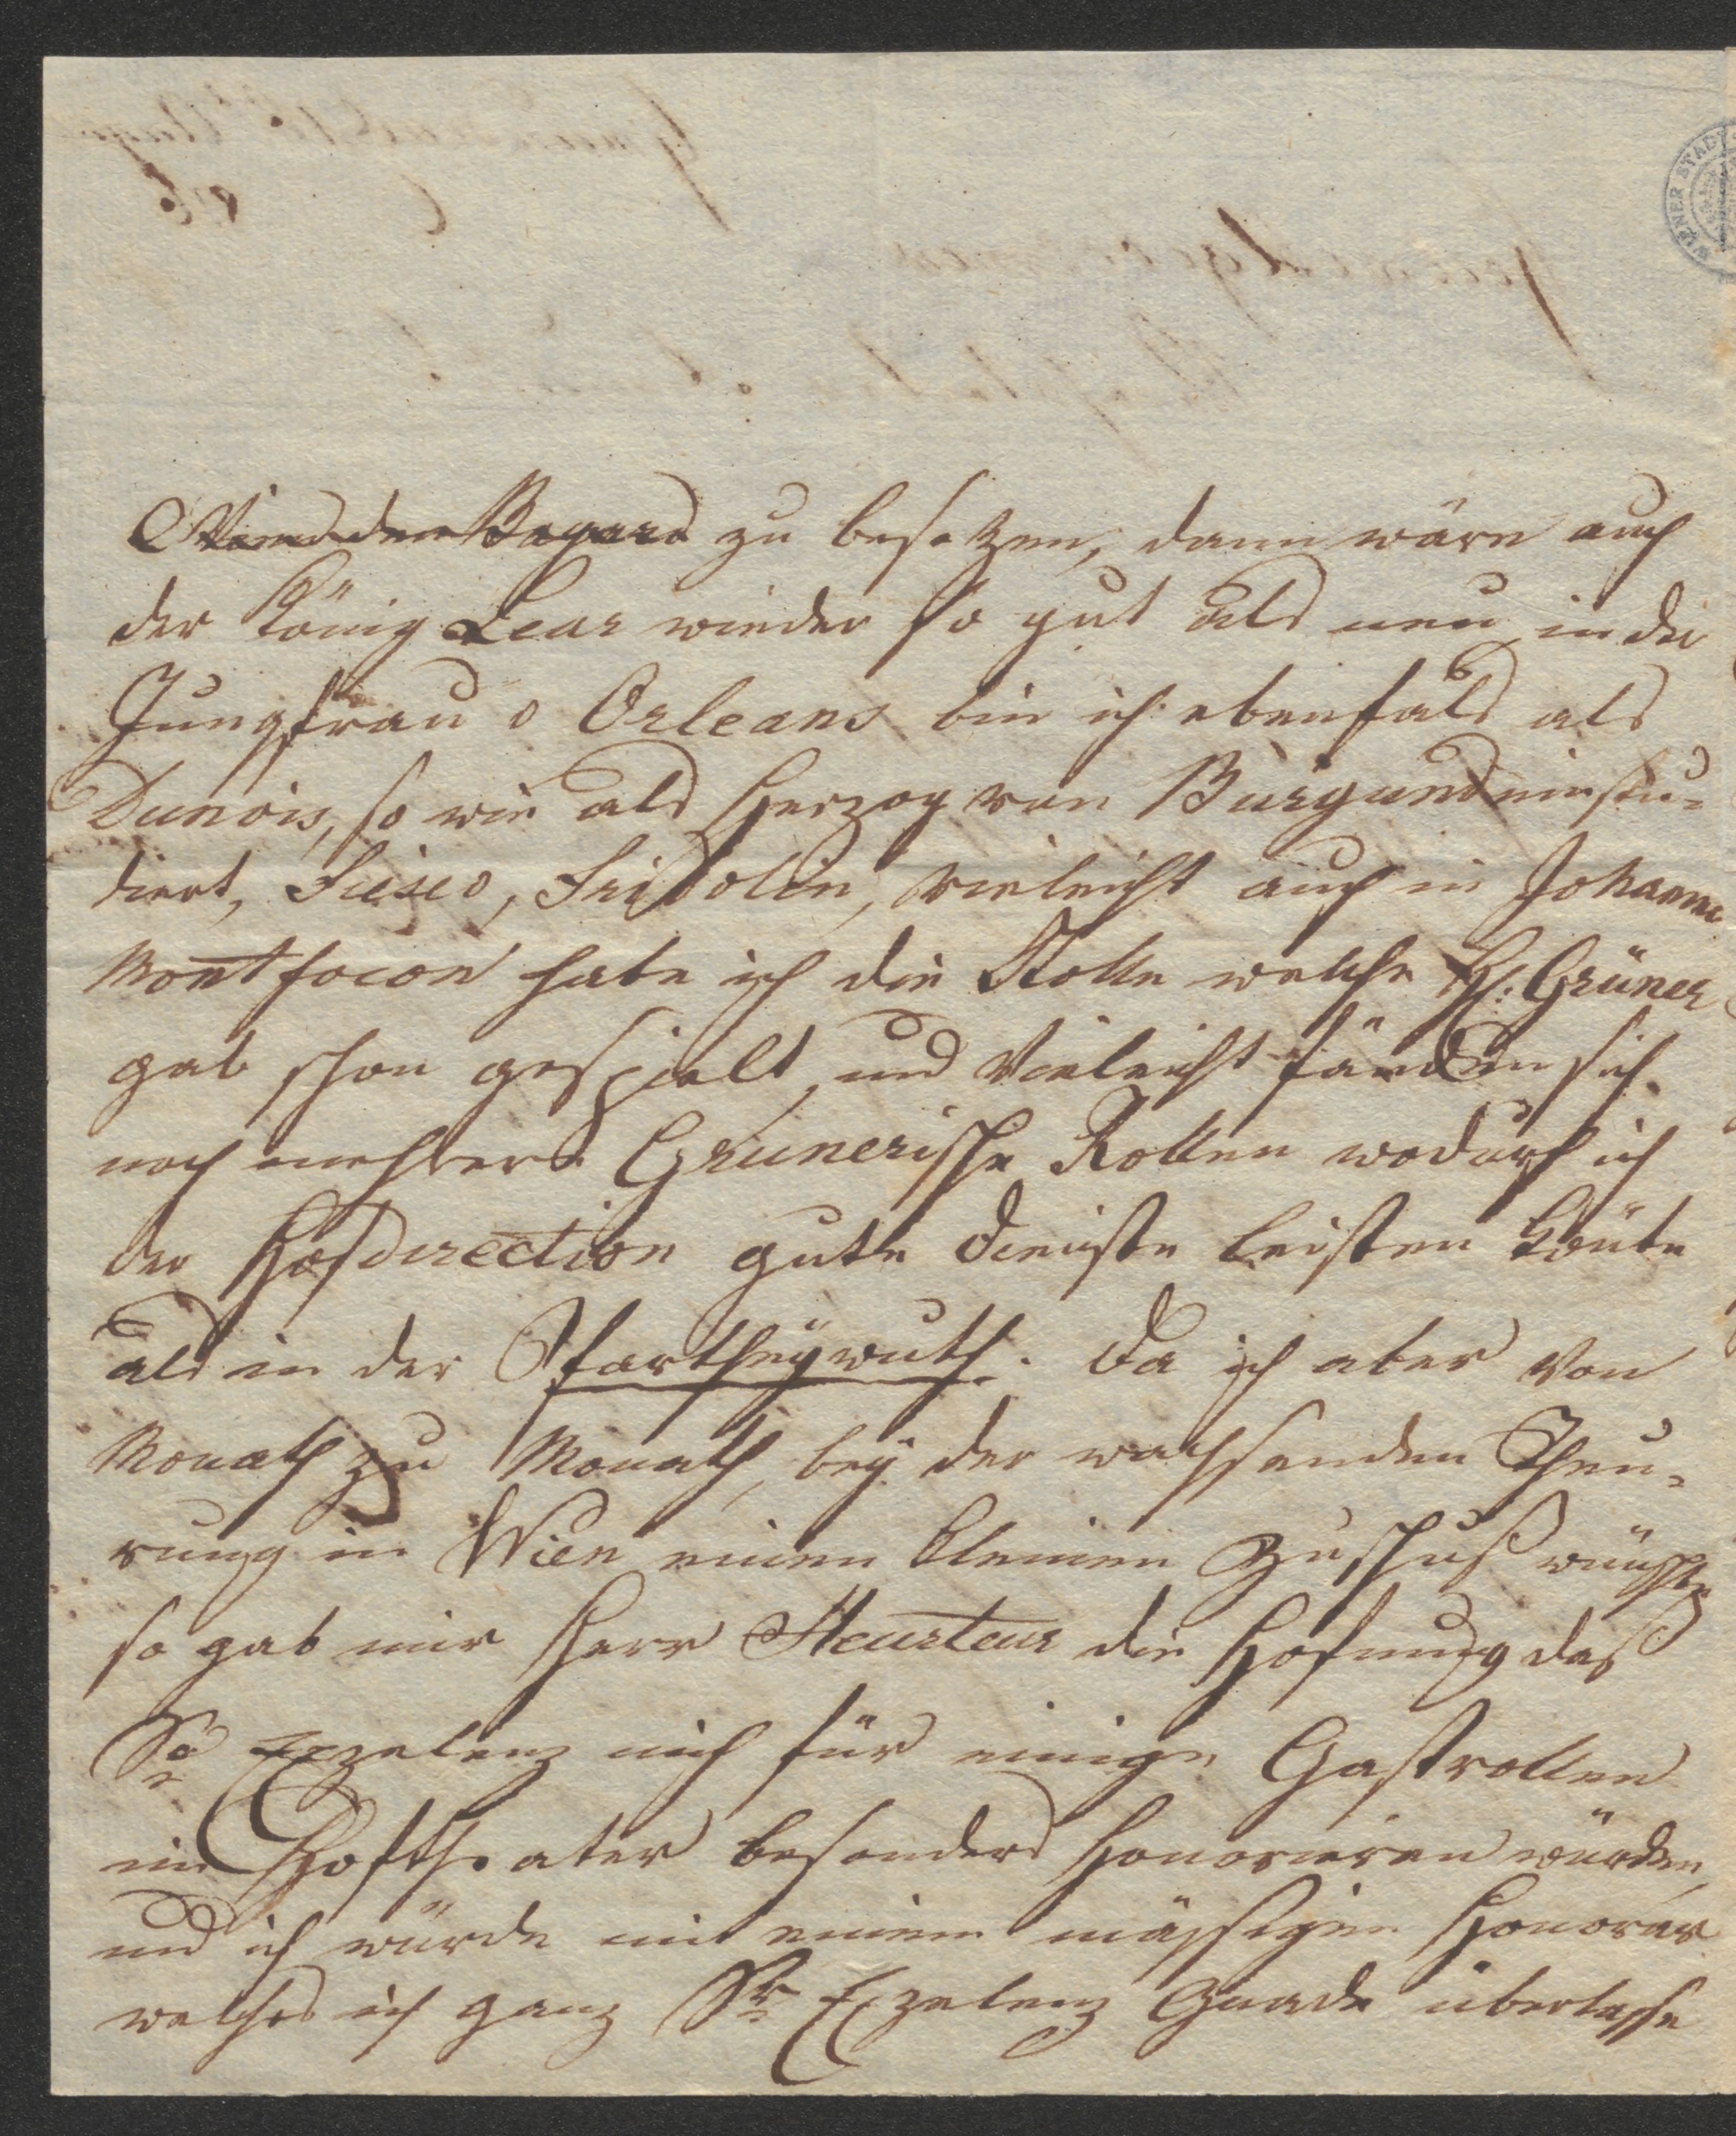 zu besetzen, dann wäre auch
der König Lear wieder so gut als neu, in der
Jungfrau v Orleans bin ich ebenfals als
Dunois, so wie als Herzog von Burgund einstu-
diert, Fiesco, Fridolin, vieleicht auch in Johanna
Montfocon habe ich die Rolle welche H: Grüner
gab schon gespielt, und Vieleicht fänden sich
noch mehrere Grünerische Rollen wodurch ich
der Hofdirection gute Dienste leisten könte
als in der Partheywuth. Da ich aber von
Monath zu Monath, bey der wachsenden Theu-
rung in Wien einen kleinen Zuschuß wünschte
so gab mir Herr Heurteur die Hofnung daß
Se Exzelenz mich für einige Gastrollen
im Hoftheater besonders honorieren würden,
und ich würde mit einem mässigen Honorar
welches ich ganz Sr Exzelenz Gnade überlasse
WIENER STAD